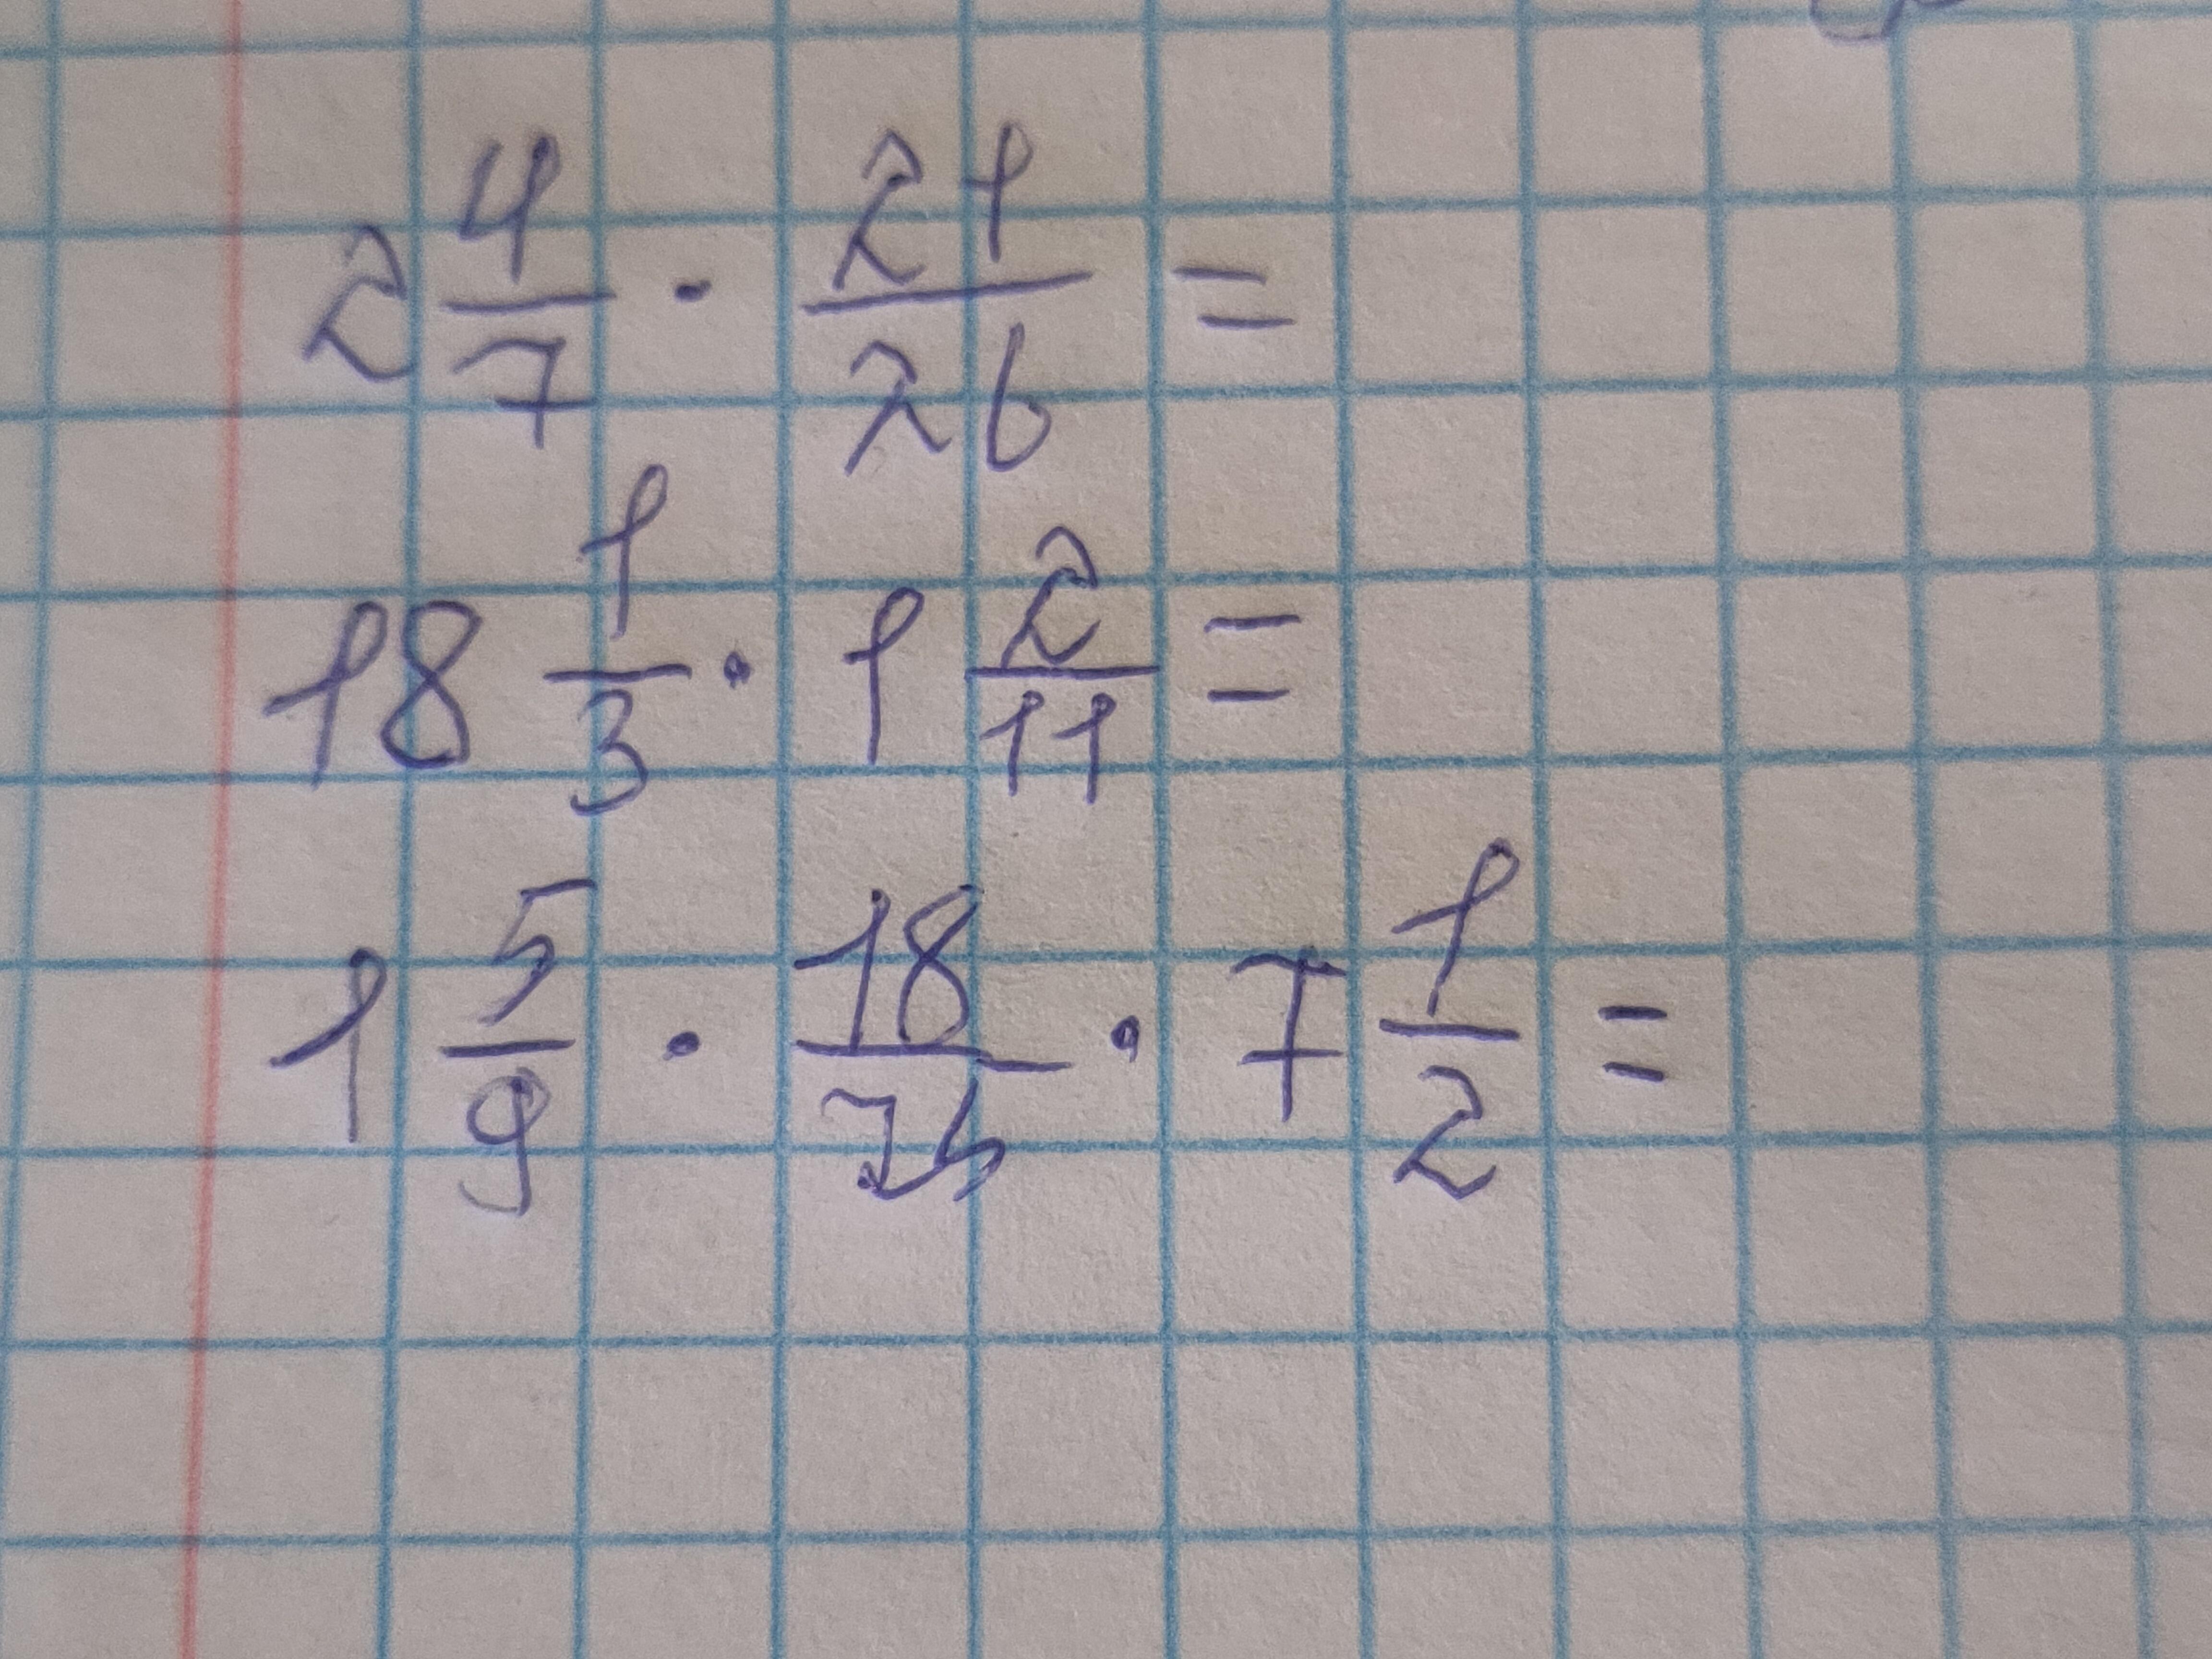 2 4/7 · 21/26 =
18 1/3 · 1 2/11 =
1 5/9 · 18/75 · 7 1/2 =